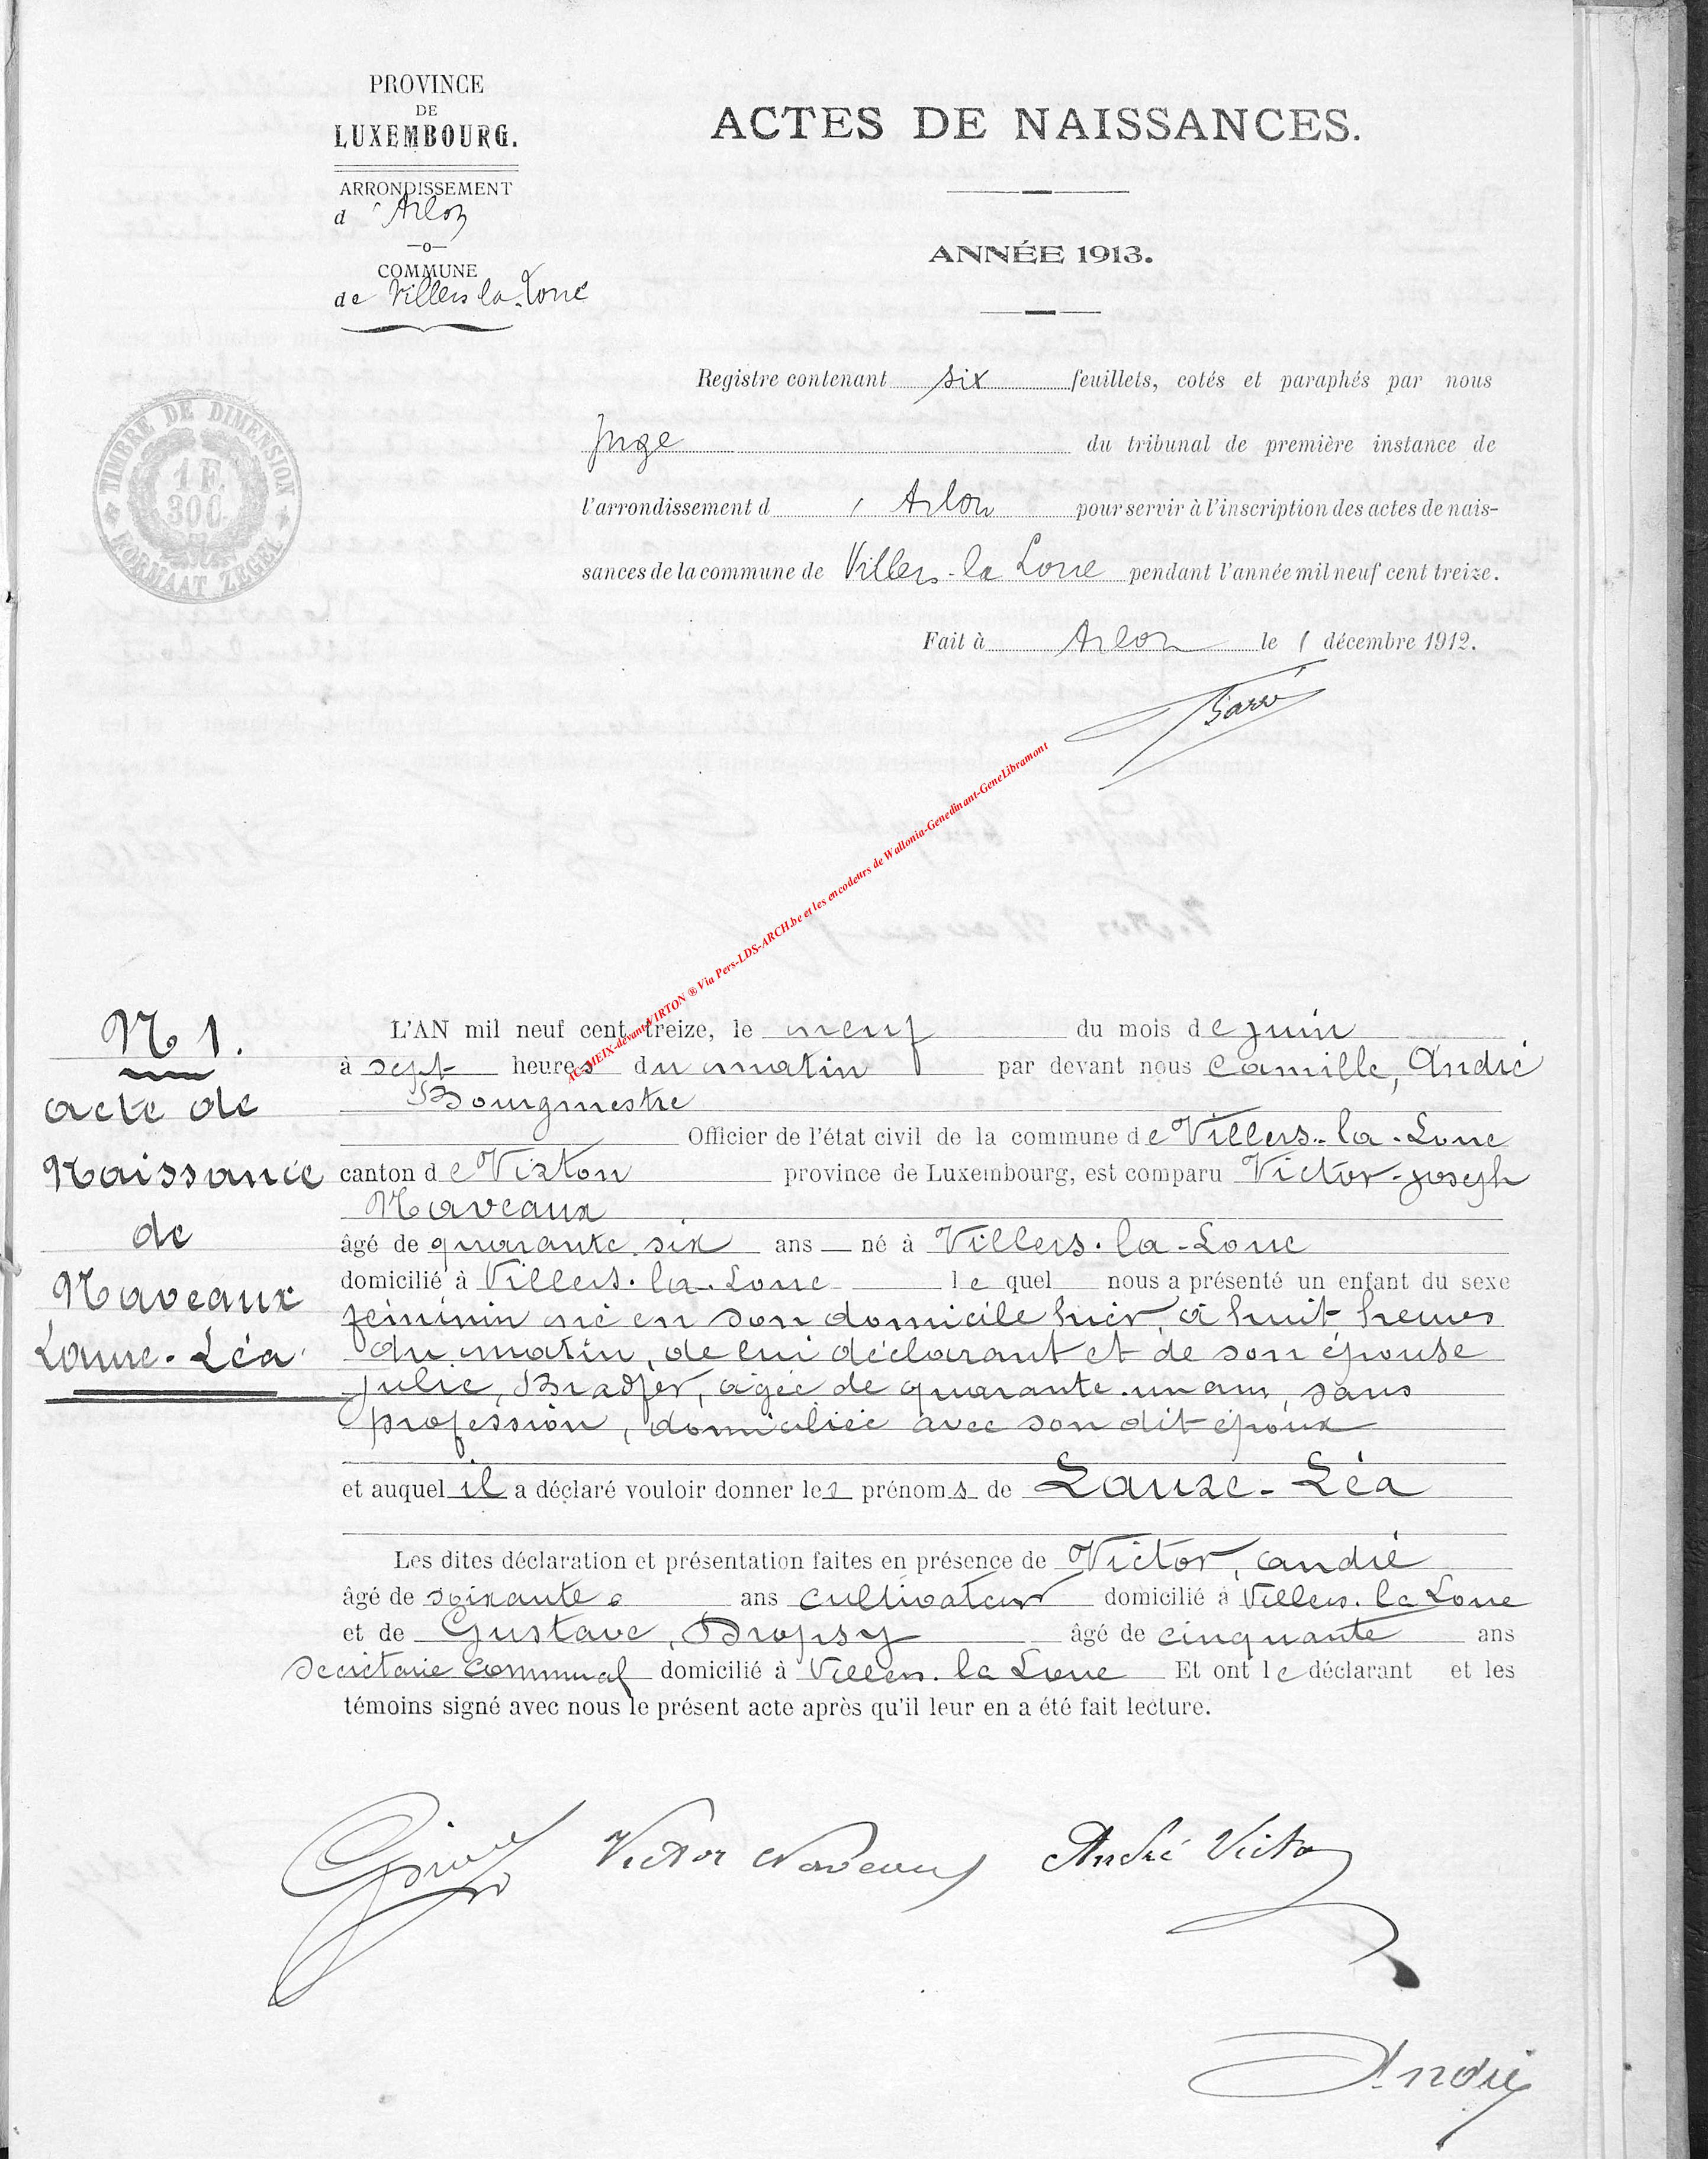 PROVINCE
DE
LUXEMBOURG.
ARRONDISSEMENT
d 'Arlon
—o—
COMMUNE
de Villers la Loue
ACTES DE NAISSANCES.
ANNÉE 1913.
TIMBRE DE DIMENSION
1 F.
30C.
FORMAAT ZEGEL
Registre contenant six feuillets, cotés et paraphés par nous
Juge du tribunal de première instance de
l'arrondissement d ' Arlon pour servir à l'inscription des actes de nais-
sances de la commune de Villers-la Loue pendant l'année mil neuf cent treize.
Fait à Arlon le 1 décembre 1912.
AC-MEIX-devant-VIRTON ® Via Pers-LDS-ARCH.be et les encodeurs de Wallonia-Genedinant-GeneLibramont
N 1.
acte de
Naissance
de
Naveaux
Laure-Léa
L'AN mil neuf cent treize, le neuf du mois de juin
à sept heures du matin par devant nous Camille, André
Bourgmestre
Officier de l'état civil de la commune de Villers-la-Loue
canton de Virton province de Luxembourg, est comparu Victor-joseph
Naveaux
âgé de quarante-six ans né à Villers-la-Loue
domicilié à Villers-la-Loue le quel nous a présenté un enfant du sexe
féminin né en son domicile hier, à huit heures
du matin, de lui déclarant et de son épouse
Julie, Bradfer, âgée de quarante-un ans, sans
profession, domiciliée avec son dit époux
et auquel il a déclaré vouloir donner les prénoms de Laure-Léa
Les dites déclaration et présentation faites en présence de Victor, andré
âgé de soixante ans cultivateur domicilié à Villers-la Loue
et de Gustave, Dropsy âgé de cinquante ans
Secrétaire communal domicilié à Villers-la Loue Et ont le déclarant et les
témoins signé avec nous le présent acte après qu'il leur en a été fait lecture.
Victor Naveaux André Victor
André